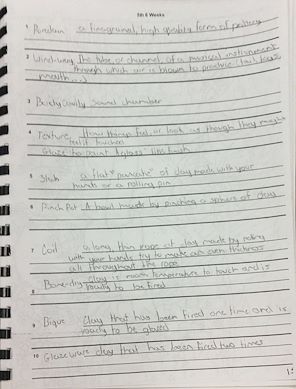 5th 6 Weeks
1 Porcelain a fine-grained, high quality form of pottery
2 Wind-way The tube, or channel, of a musical instrument
through which air is blown to produce
mouth
3 Body Cavity Sound chamber
4 Texture How things feel, or look as though they might
feel if touched
Glaze to paint "glass" like finish
5 Slab a flat "pancake" of clay made with your
hands or a rolling pin
6 Pinch Pot A bowl made by pinching a sphere of clay
7 Coil a long thin rope of clay made by rolling
with your hands try to make an even thickness
all throughout the rope
8 Bone-dry clay is room temperature to touch and is
ready to be fired
9 Bique Clay that has been fired one time and is
ready to be glazed
10 Glazeware clay that has been fired two times